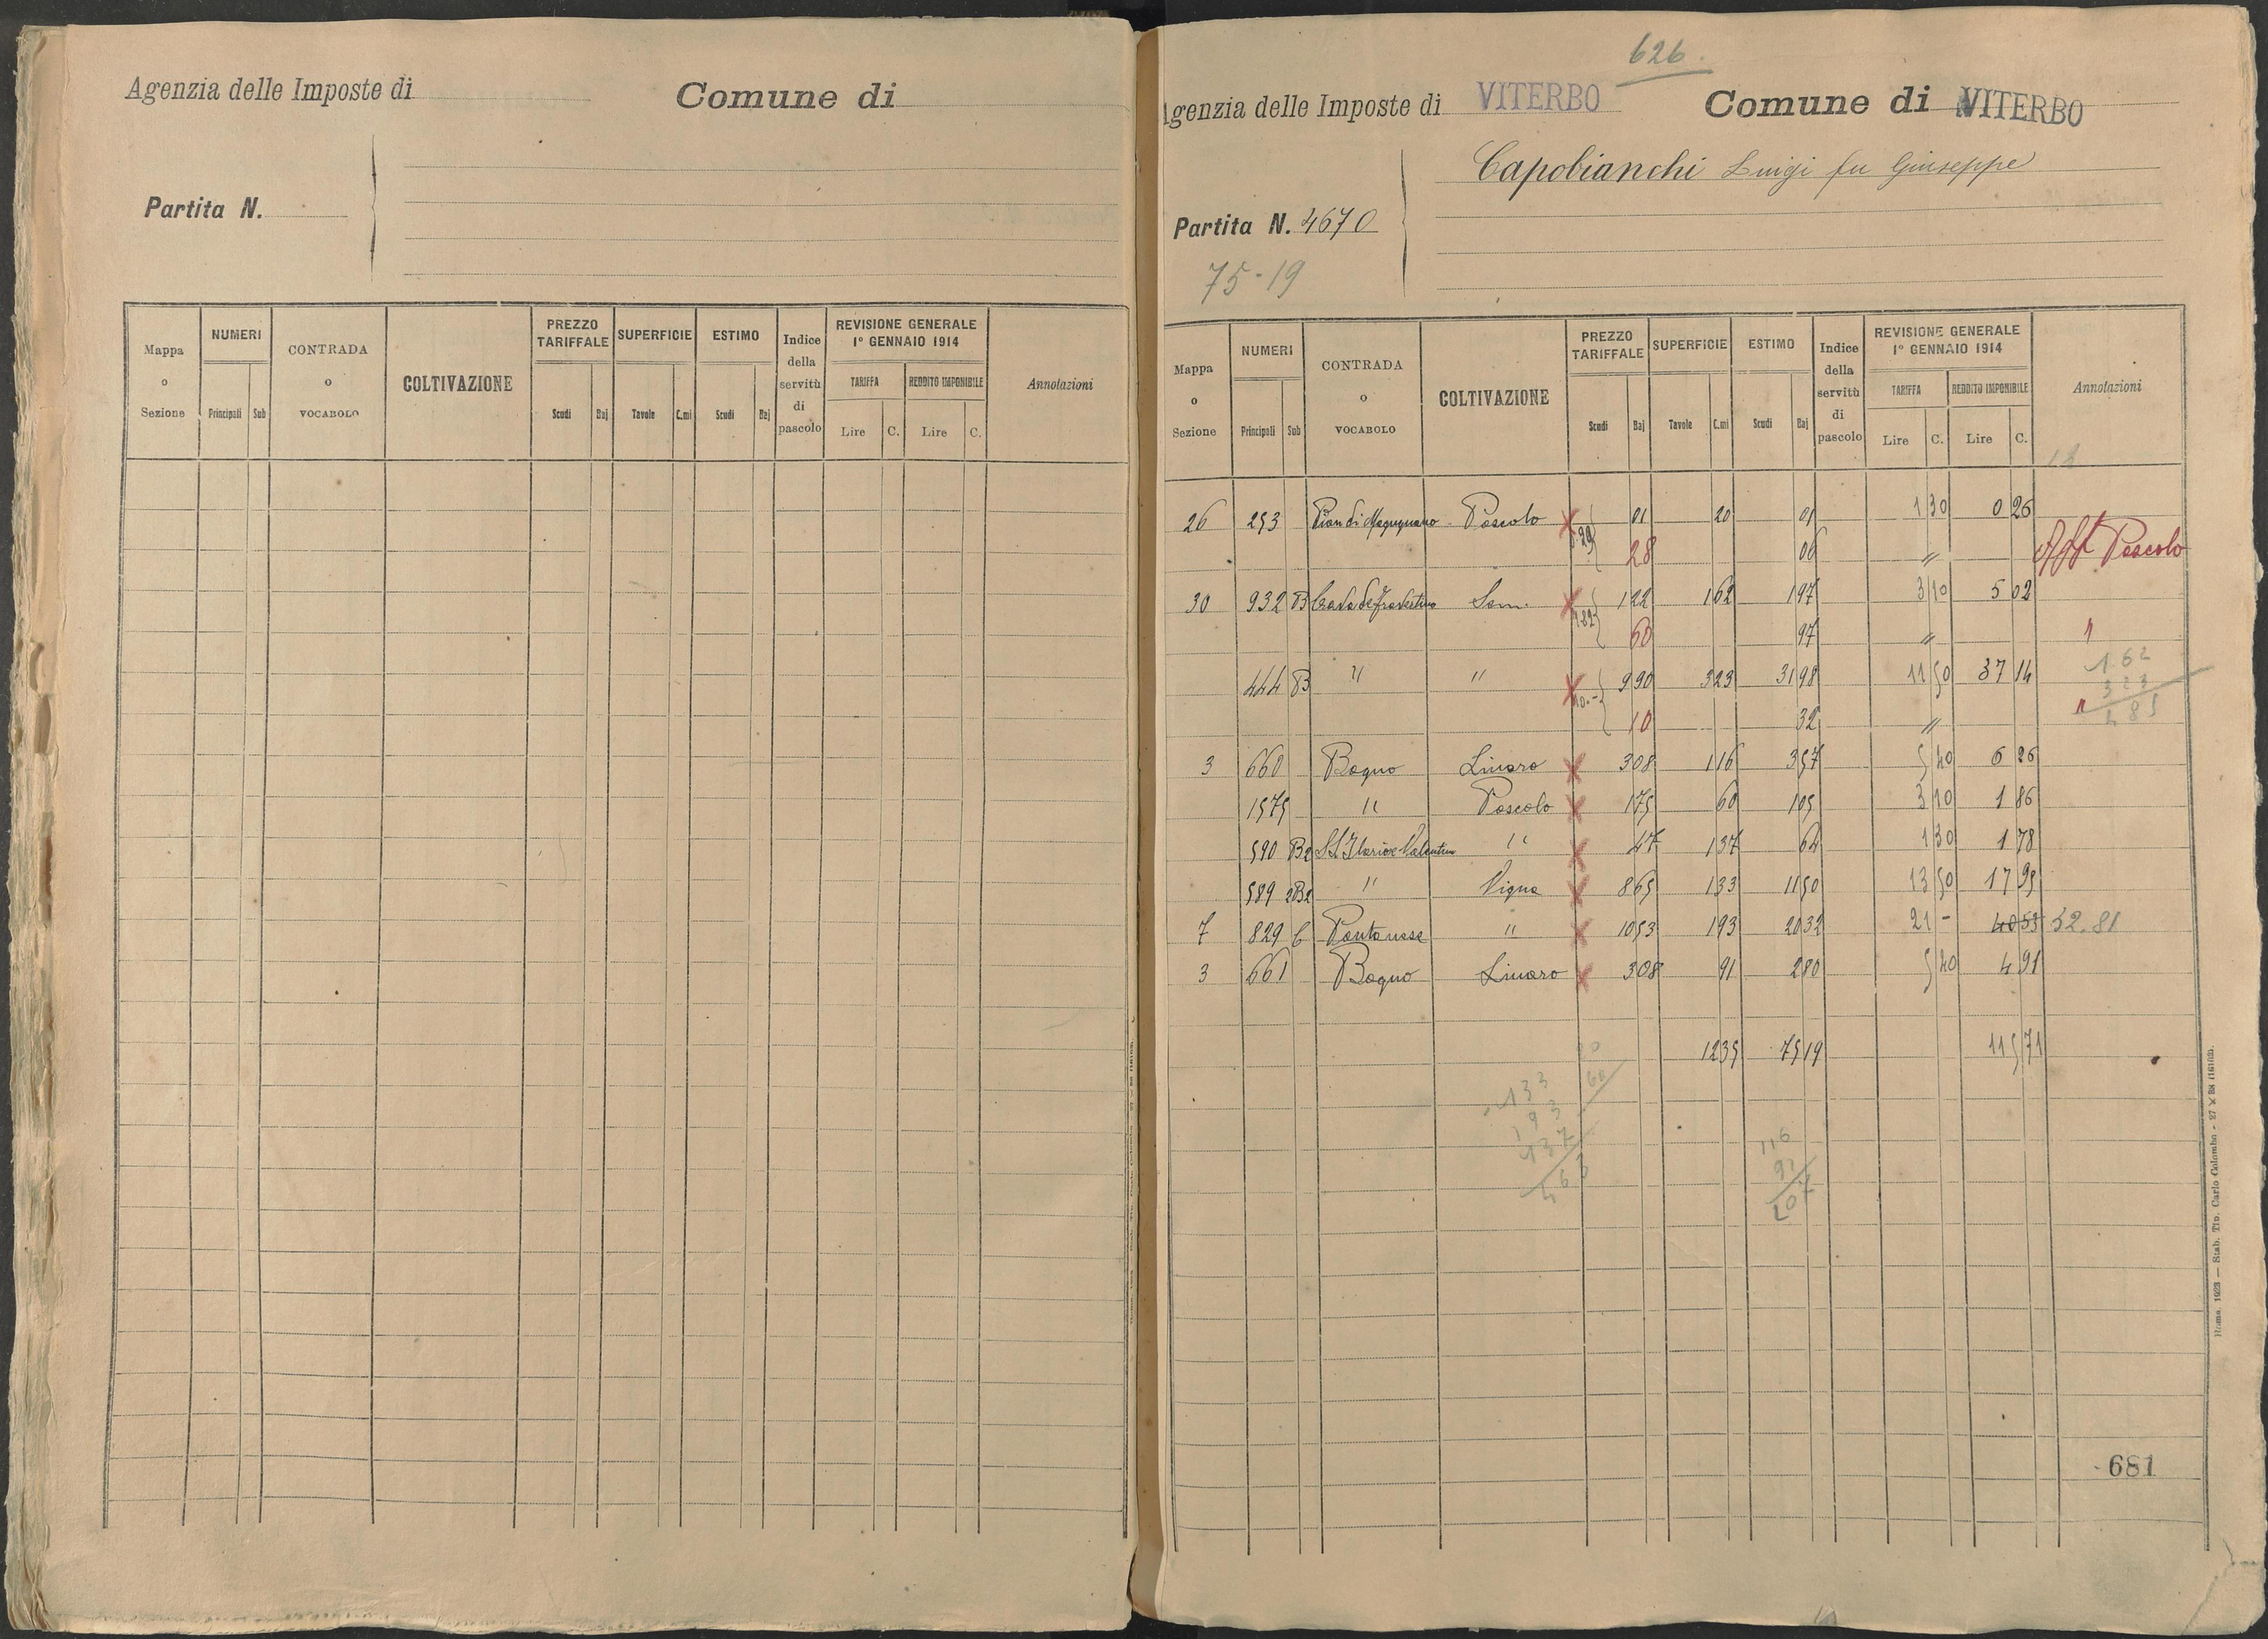 Agenzia delle Imposte di
Comune di
Partita N.
Mappa o Sezione
NUMERI
Principali Sub
CONTRADA o VOCABOLO
COLTIVAZIONE
PREZZO TARIFFALE
Scudi Baj
SUPERFICIE
Tavole C.mi
ESTIMO
Scudi Baj
Indice della servitù di pascolo
REVISIONE GENERALE 1° GENNAIO 1914
TARIFFA
Lire C.
REDDITO IMPONIBILE
Lire C.
Annotazioni
626
genzia delle Imposte di VITERBO
Comune di VITERBO
Capobianchi Luigi fu Giuseppe
Partita N. 4670
75-19
Mappa o Sezione
NUMERI
Principali Sub
CONTRADA o VOCABOLO
COLTIVAZIONE
PREZZO TARIFFALE
Scudi Baj
SUPERFICIE
Tavole C.mi
ESTIMO
Scudi Baj
Indice della servitù di pascolo
REVISIONE GENERALE 1° GENNAIO 1914
TARIFFA
Lire C.
REDDITO IMPONIBILE
Lire C.
Annotazioni
26 253 Pian di Magugnano Pascolo 01 20 01 1 30 0 26
28 06 " Aff Pascolo
30 932 B Cava de Travertino Sem. 1 22 1 62 1 97 3 10 5 02
60 97 " "
444 B " " 9 90 3 23 31 98 11 50 37 14
10 32 " "
162
323
485
3 660 Bagno Linaro 3 08 1 16 3 57 5 40 6 26
1575 " Pascolo 1 75 60 1 05 3 10 1 86
590 B2 SS. Ilario e Valentino " 47 1 37 64 1 30 1 78
589 2B2 " Vigna 8 65 1 33 11 50 13 50 17 95
7 829 C Pantanese " 10 53 1 93 20 32 21 - 40 53 32.81
3 661 Bagno Linaro 3 08 91 2 80 5 40 4 91
12 35 75 19 115 71
133
193
137
463
116
91
207
681
Roma, 1923 — Stab. Tip. Carlo Colombo - 27 X